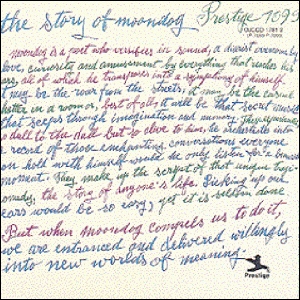 the story of moondog Prestige 7099
OJCCD-1741-2
(P-7099)
Moondog is a poet who versifies in sound, a diarist overcome by
love, curiosity and amusement by everything that reaches his
ears, all of which he transposes into a symphony of himself.
it may be the roar from the streets, it may be the casual
chatter in a room, best of all, it will be that secret music
that seeps through imagination and memory. They are
a dull to the dull but so alive to him, he orchestrates into
a record of those enchanting conversations everyone
can hold with himself would he only listen for a human
moment. They make up the script of that unique tragi
comedy, the story of anyone's life. Pricking up one's
ears would be so easy; yet it is seldom done.
But when moondog compels us to do it,
we are entranced and delivered willingly
into new worlds of meaning.
Prestige